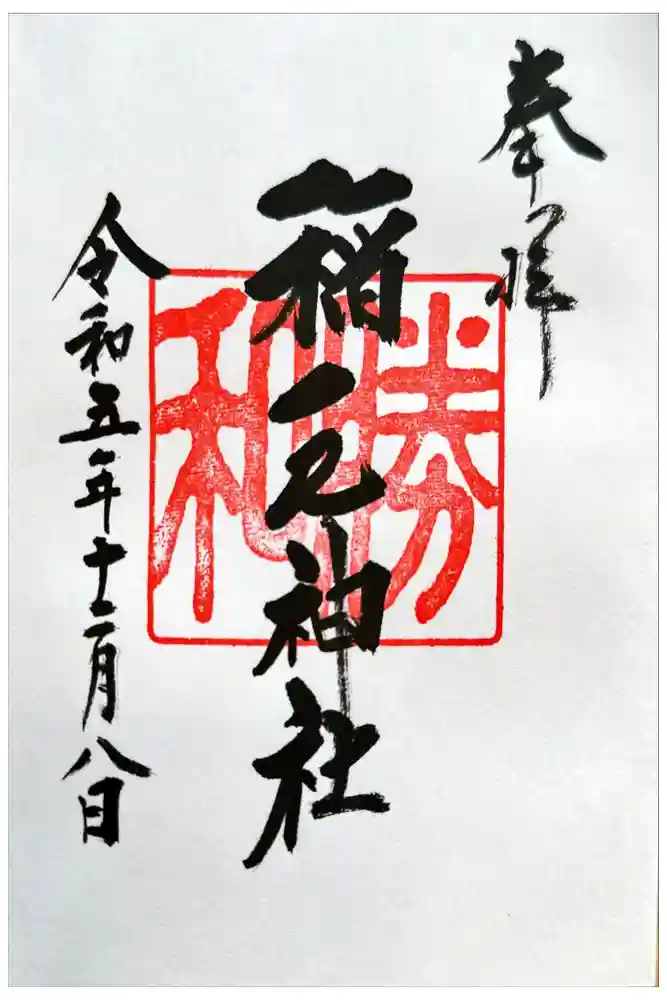 奉拝
神社
令和五年十二月八日
勝
和